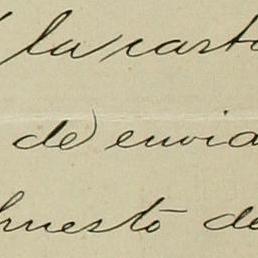 la carta
de envia
puesto de